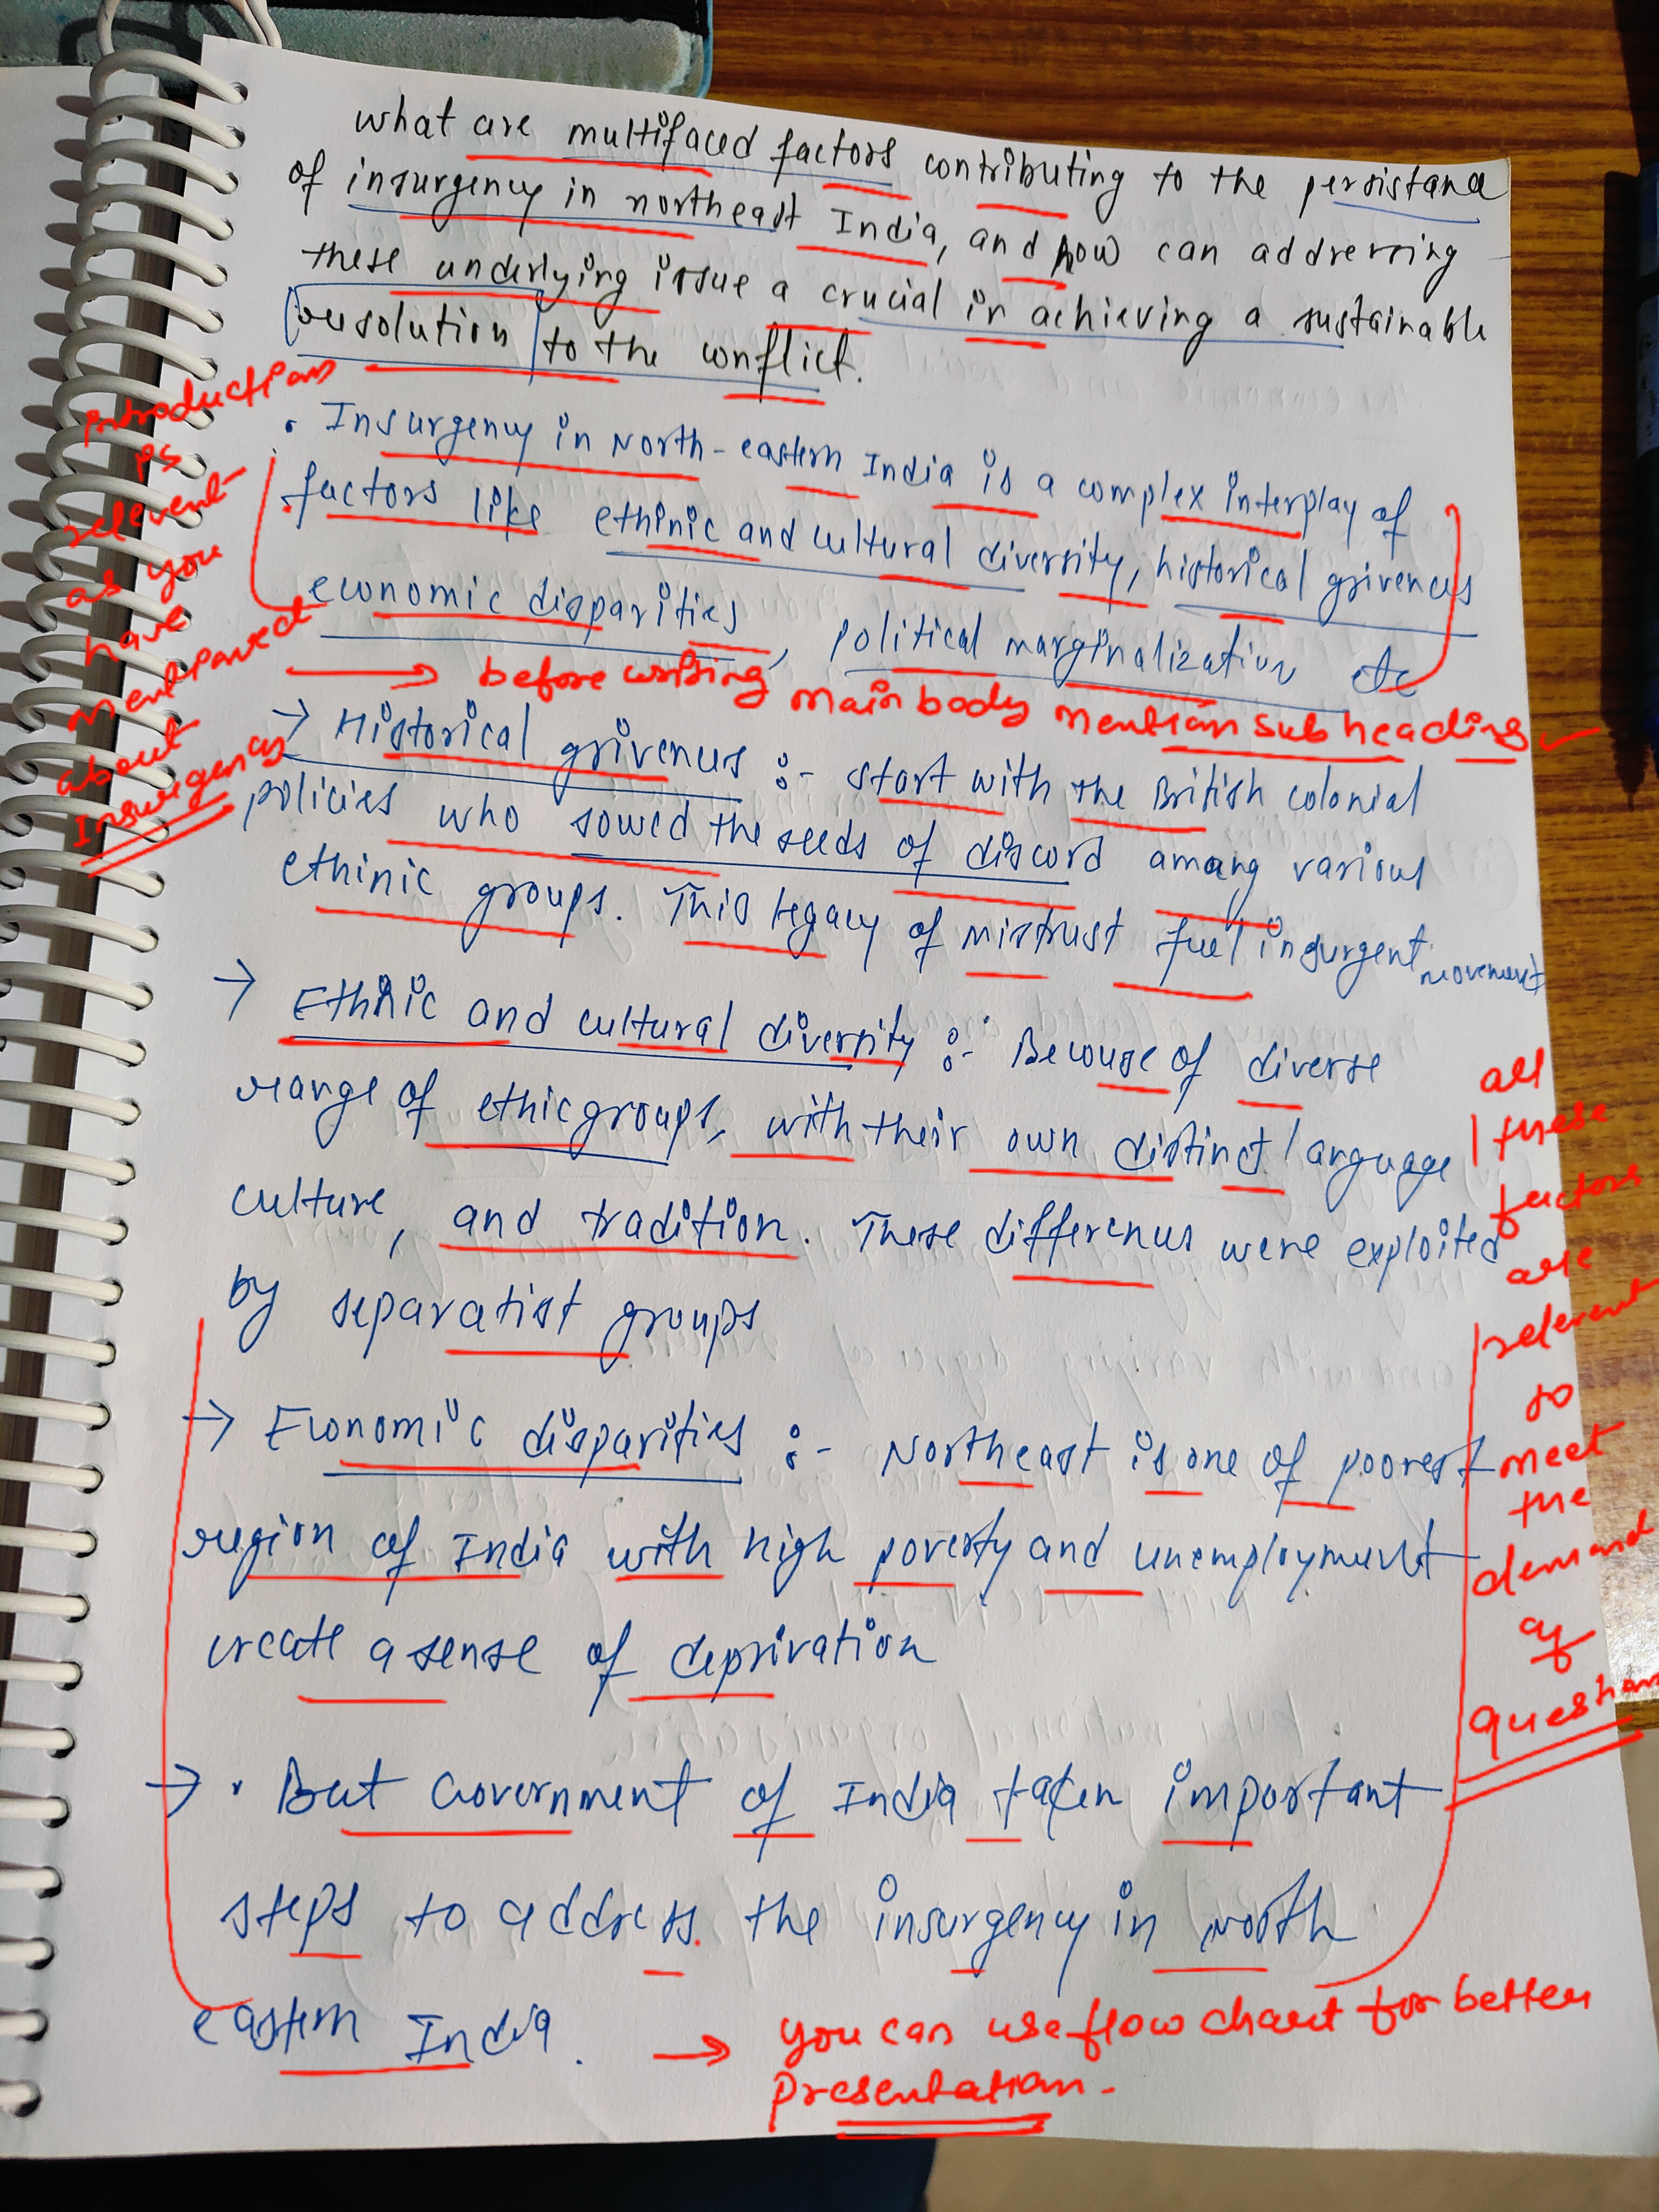 what are multifaced factors contributing to the persistance
of insurgency in northeast India, and how can addressing
these underlying issue a crucial in achieving a sustainable
resolution to the conflict.
Introduction
is
relevent
as you
have
mentioned
about
Insurgency
• Insurgency in North-eastern India is a complex interplay of
factors like ethinic and cultural diversity, historical grivences
economic disparities, political marginalization etc
→ before writing main body mention sub heading
→ Historical grivences :- start with the British colonial
policies who sowed the seeds of discord among various
ethinic groups. This legacy of mistrust fuel insurgent movement
→ Ethnic and cultural diversity :- Because of diverse
range of ethic groups, with their own distinct language
culture, and tradition. These differences were exploited
by separatist groups
→ Economic disparities :- Northeast is one of poorest
region of India with high poverty and unemployment
create a sense of deprivation
→ • But Government of India taken important
steps to address the insurgency in north
eastern India.
all
these
factors
are
relevent
to
meet
the
demand
of
question
→ you can use flow chart for better
presentation.